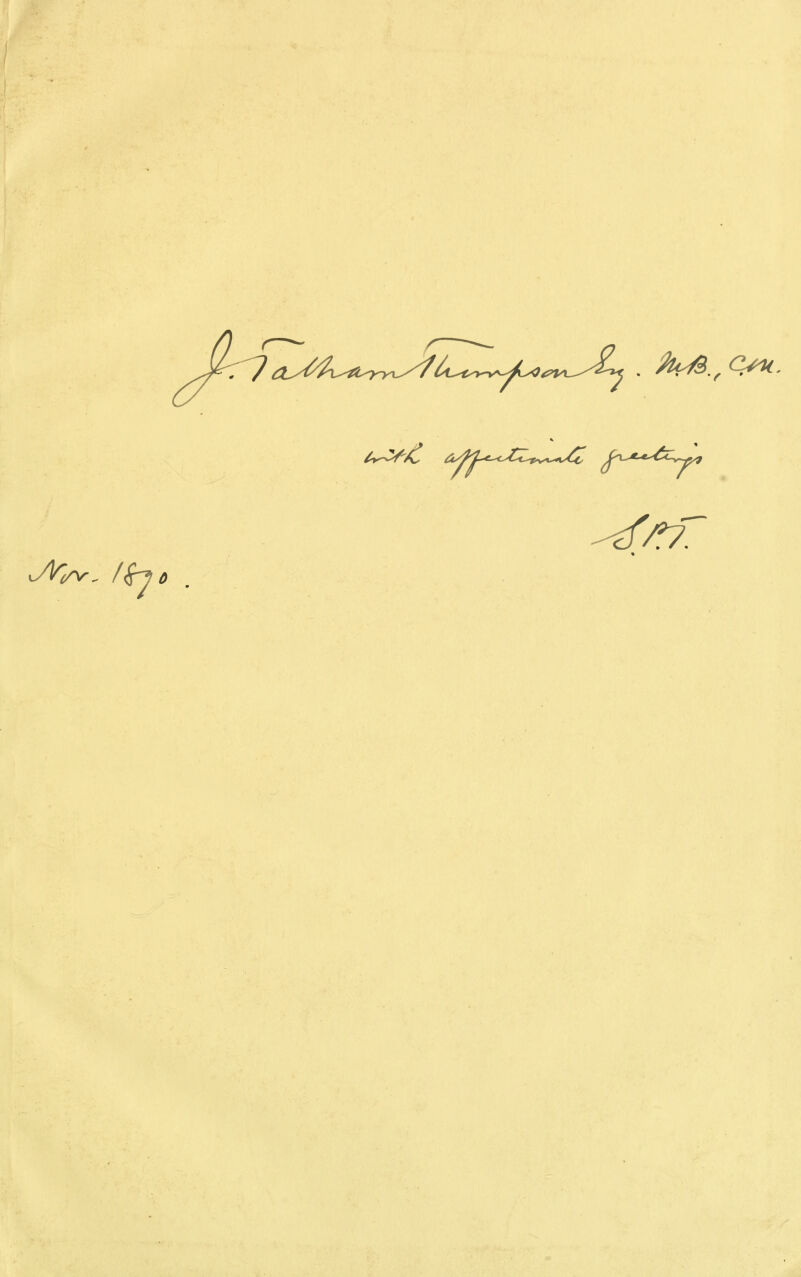 J. Tatham Thompson Esq. M.B., C.M.
with affectionate greetings
S.P.T.
Nov. 1890.